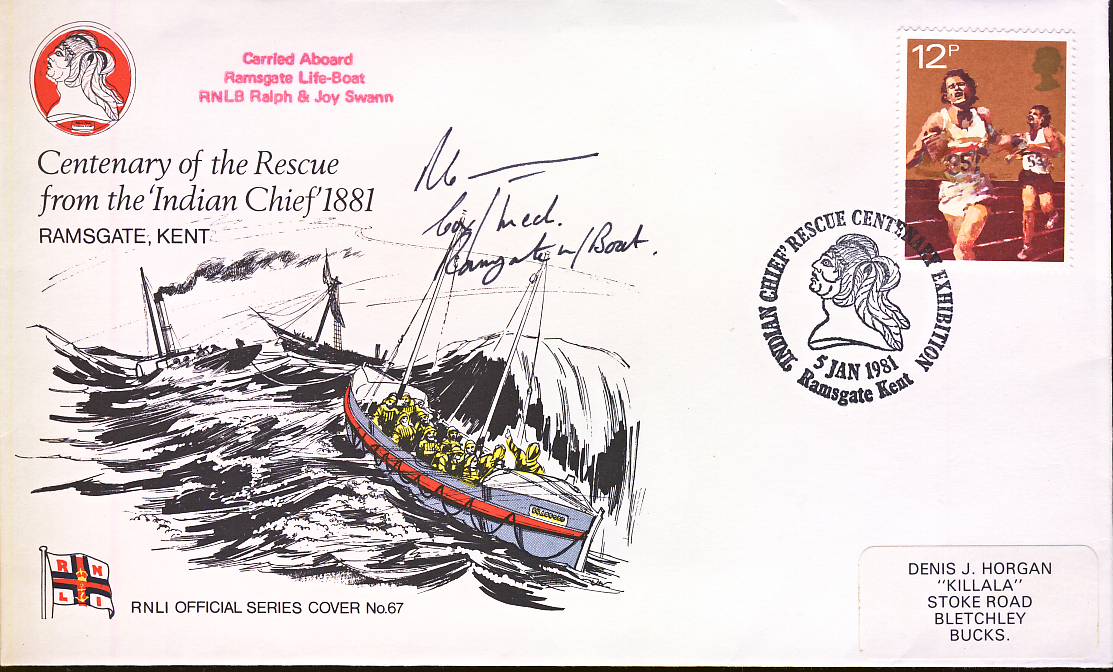 Carried Aboard
Ramsgate Life-Boat
RNLB Ralph & Joy Swann
12P
Centenary of the Rescue
from the 'Indian Chief' 1881
RAMSGATE, KENT
Ramsgate
Boat.
857
53
'INDIAN CHIEF' RESCUE CENTENARY EXHIBITION
5 JAN 1981
Ramsgate Kent
R N
L I
RNLI OFFICIAL SERIES COVER No.67
DENIS J. HORGAN
"KILLALA"
STOKE ROAD
BLETCHLEY
BUCKS.